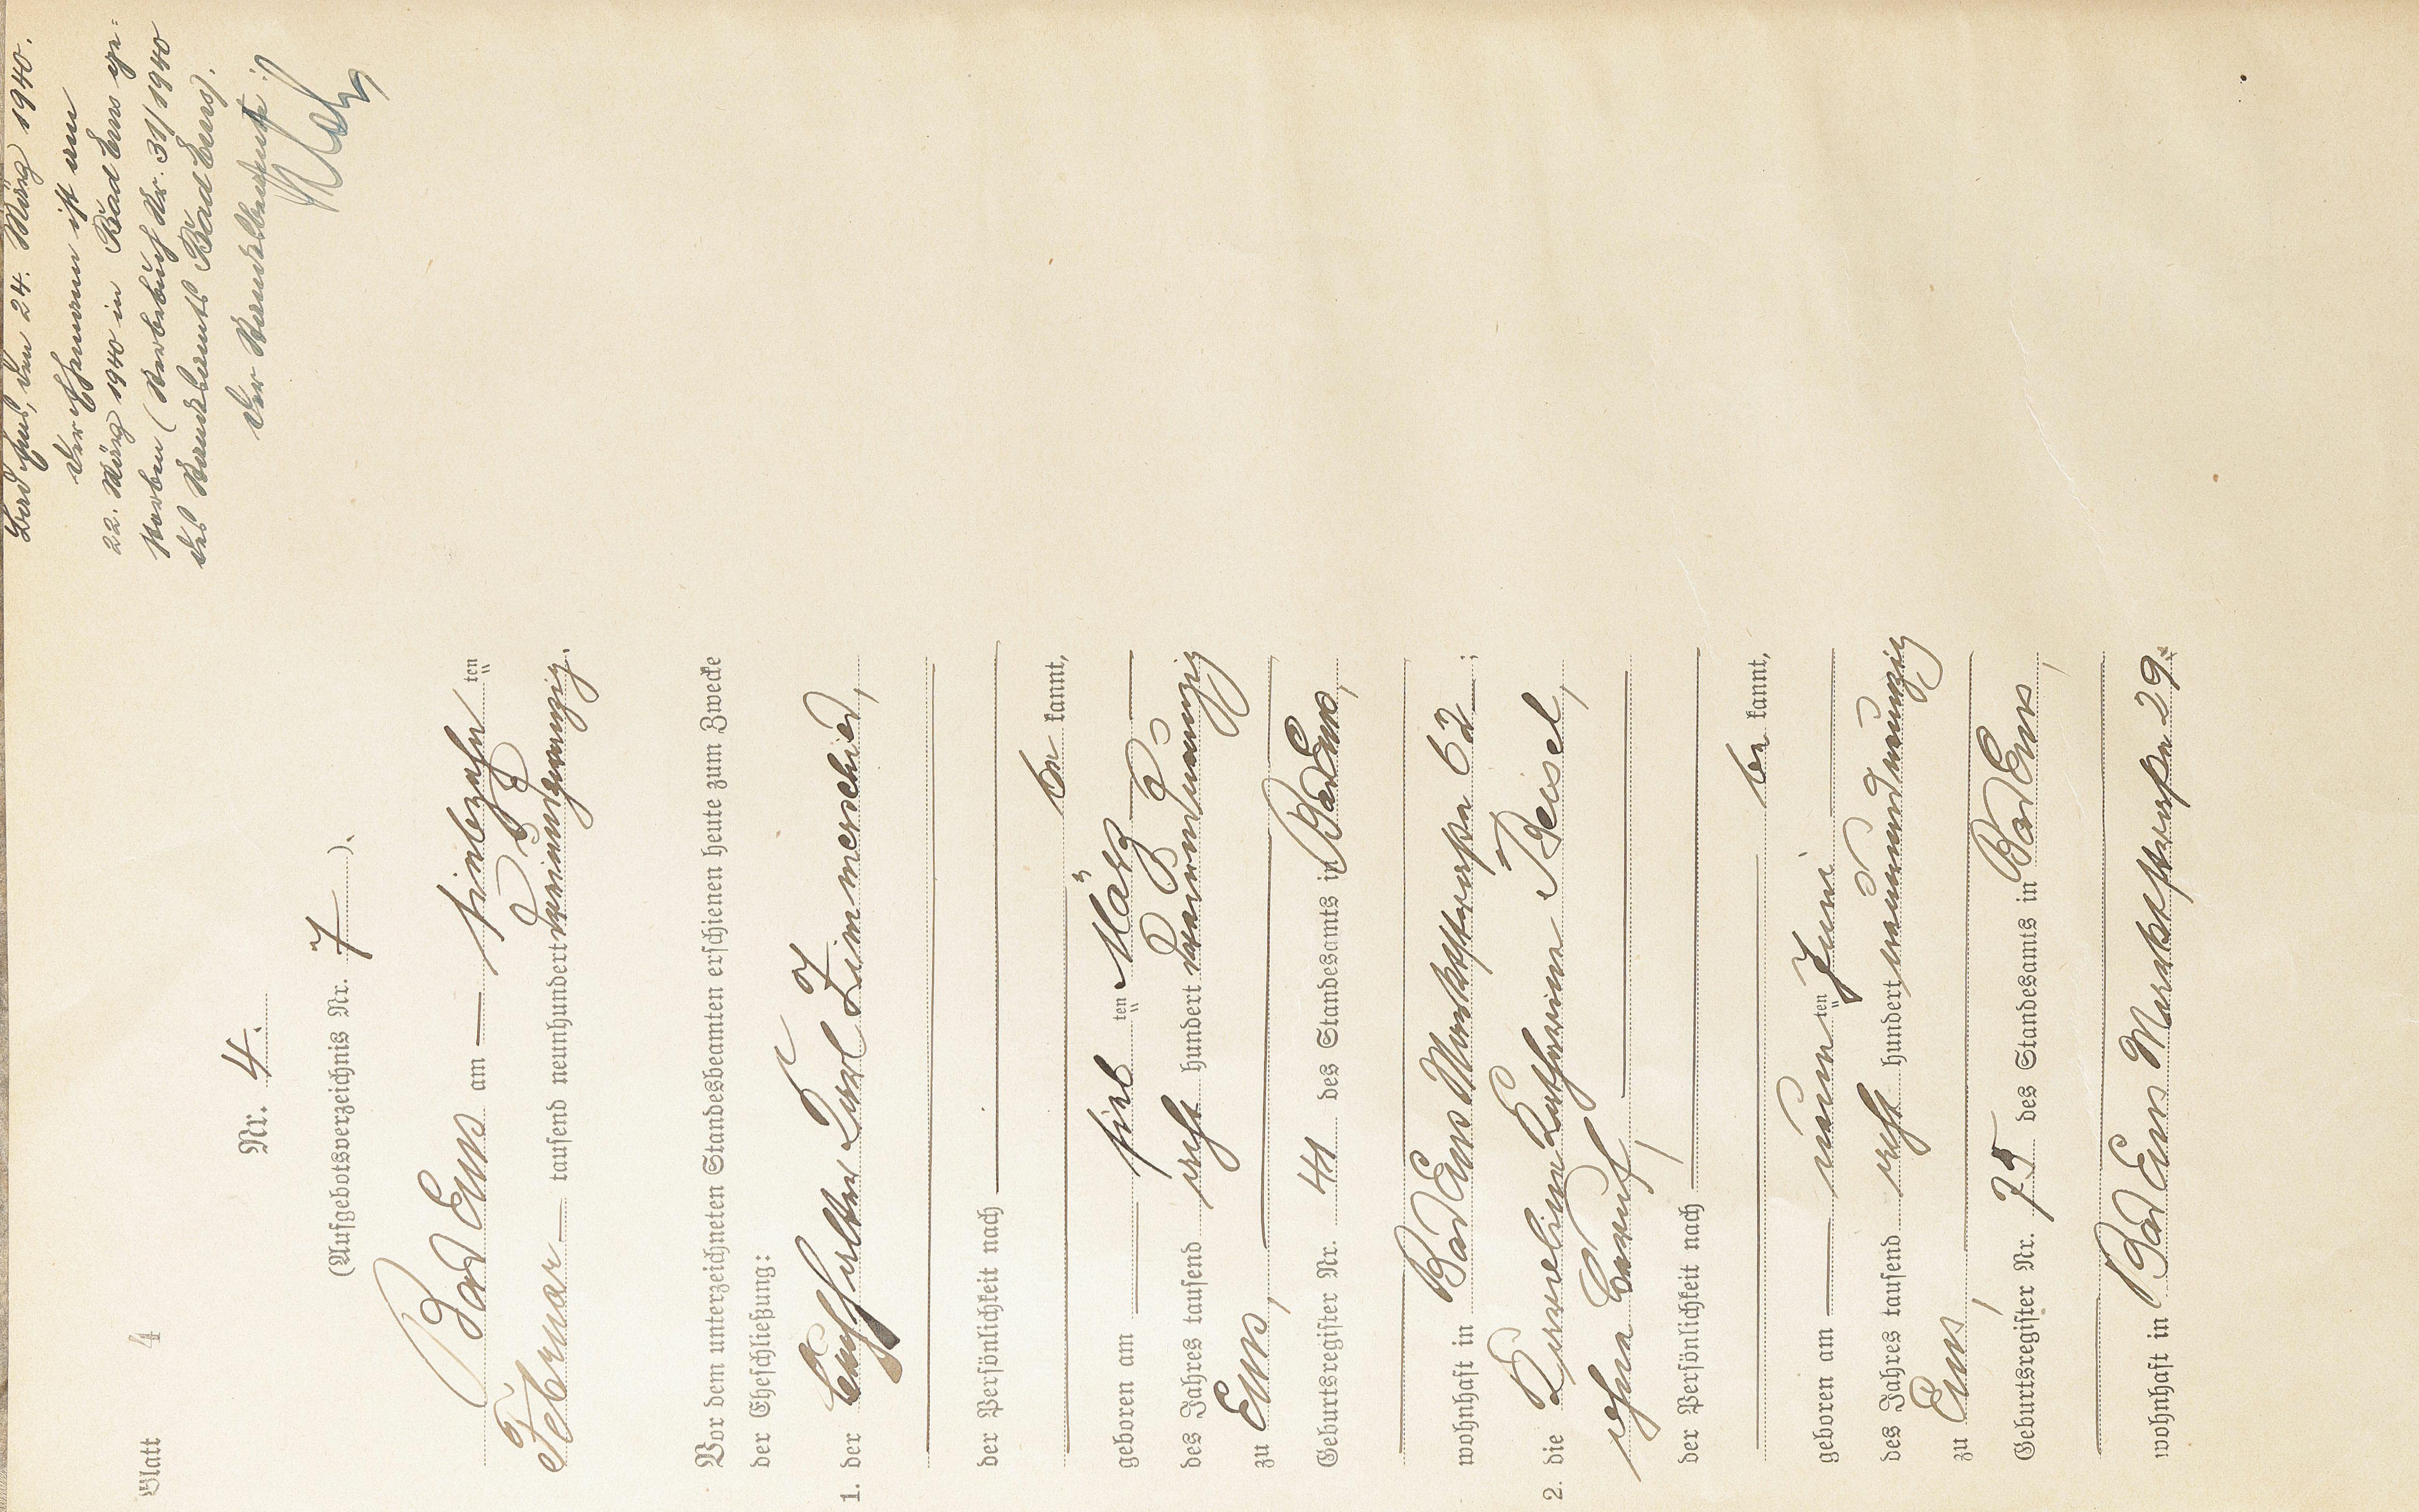 Blatt 4
Bad Ems, den 24. März 1940.
Der Ehemann ist am
22. März 1940 in Bad Ems ge=
storben (Sterbebuch Nr. 31/1940
des Standesamts Bad Ems).
Der Standesbeamte:
Nr. 4.
(Aufgebotsverzeichnis Nr. 7).
Bad Ems am siebzehn ten
Februar tausend neunhundert dreiundzwanzig.
Vor dem unterzeichneten Standesbeamten erschienen heute zum Zwecke
der Eheschließung:
1. der Buchhalter Karl Zimmerschied,
der Persönlichkeit nach
be kannt,
geboren am sieb ten März
des Jahres tausend acht hundert neunundneunzig
zu Ems,
Geburtsregister Nr. 41 des Standesamts in Bad Ems,
wohnhaft in Bad Ems Marktstraße 62;
2. die Karoline Katharina Beisel,
ohne Beruf,
der Persönlichkeit nach
be kannt,
geboren am neun ten Juni
des Jahres tausend acht hundert neunundneunzig
zu Ems,
Geburtsregister Nr. 75 des Standesamts in Bad Ems,
wohnhaft in Bad Ems Marktstraße 29.